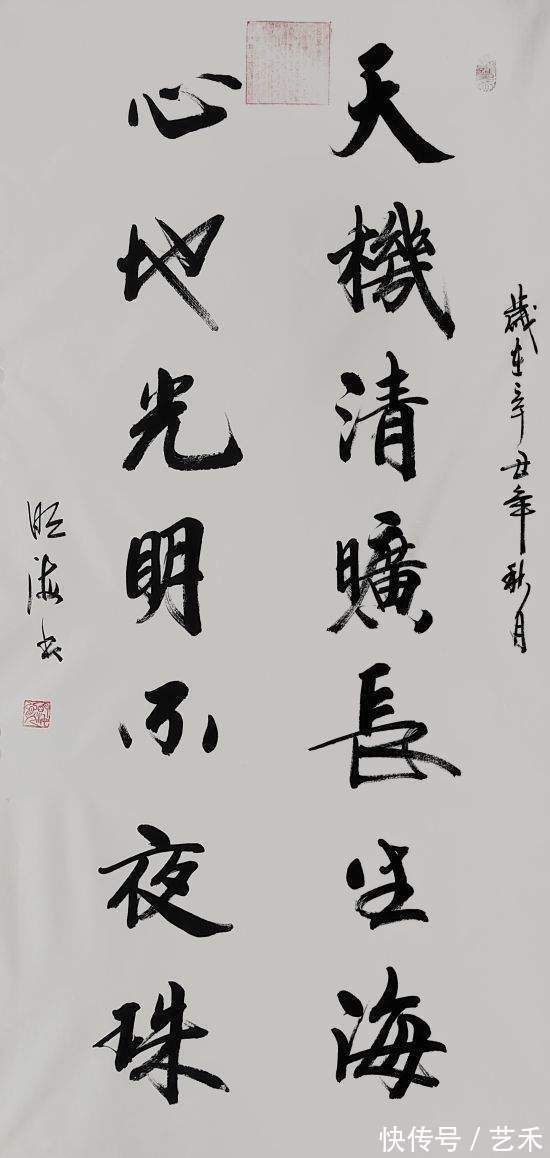 歲在辛丑年秋月
天機清曠長生海
心地光明不夜珠
海书
快传号 / 艺禾